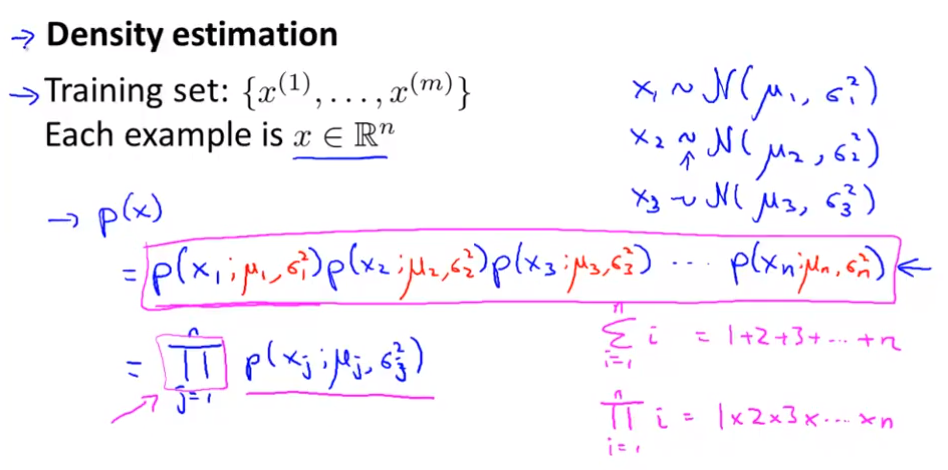 → Density estimation
→ Training set: {x⁽¹⁾, . . . , x⁽ᵐ⁾}
Each example is x ∈ ℝⁿ
x₁ ~ N(μ₁, σ₁²)
x₂ ~ N(μ₂, σ₂²)
↑
x₃ ~ N(μ₃, σ₃²)
→ p(x)
= p(x₁; μ₁, σ₁²) p(x₂; μ₂, σ₂²) p(x₃; μ₃, σ₃²) ··· p(xₙ; μₙ, σₙ²) ←
= ∏ⱼ₌₁ⁿ p(xⱼ; μⱼ, σⱼ²)
∑ᵢ₌₁ⁿ i = 1+2+3+···+n
∏ᵢ₌₁ⁿ i = 1×2×3×···×n